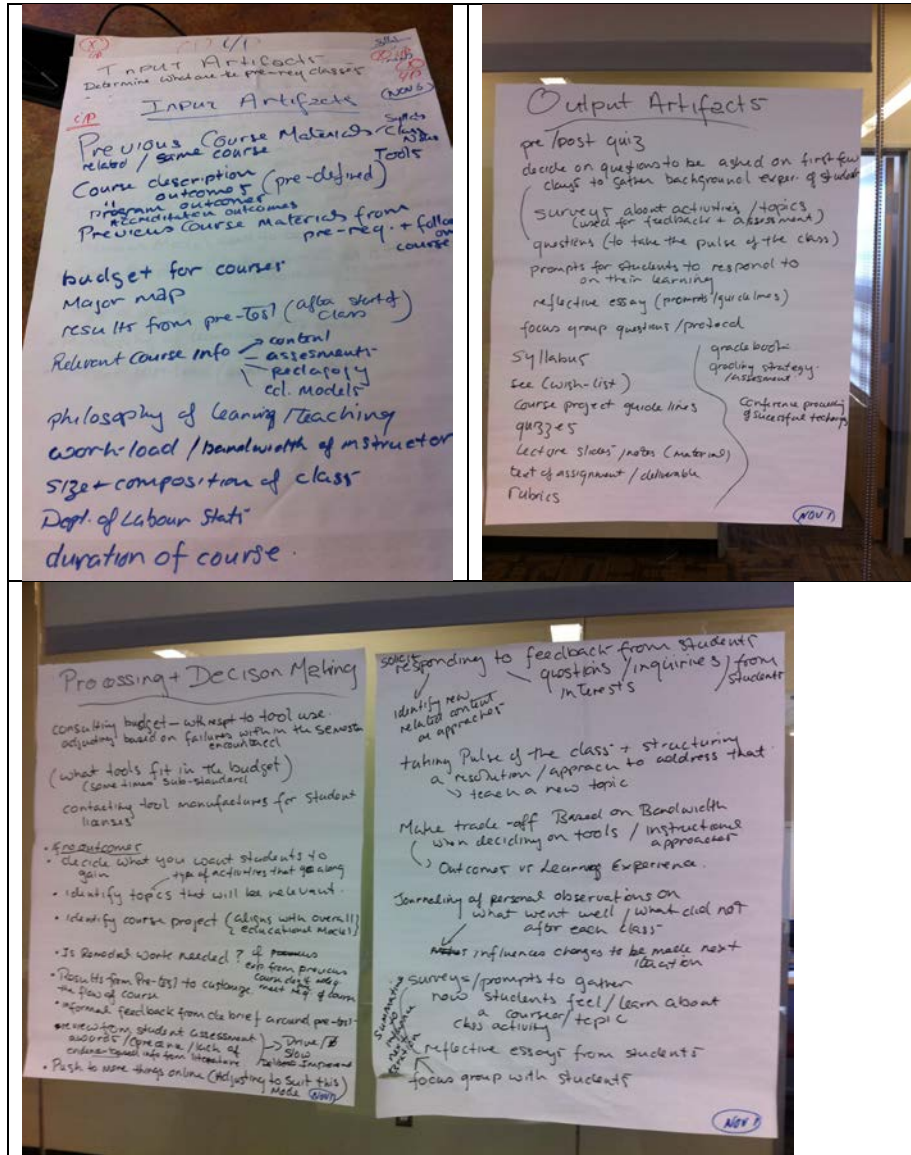 I/P
Input Artifacts
Determine what are the pre-req classes
Input Artifacts
NOV 6
I/P
Previous Course Materials
related / same course
Class Notes
Tools
Course description
" outcomes (pre-defined)
program outcomes
Accreditation outcomes
Previous Course Materials from
pre-req. + follow
on
course
budget for courses
Major map
results from pre-test (after start of
class)
Relevant Course Info
content
assesments
pedagogy
ed. models
philosophy of learning/teaching
work-load / bandwidth of instructor
size + composition of class
Dept. of Labour Stats
duration of course.
Output Artifacts
pre/post quiz
decide on questions to be asked on first few
days to gather background exper. of student
surveys about activities/topics
(used for feedback + assessment)
questions (to take the pulse of the class)
prompts for students to respond to
on their learning
reflective essay (prompts/guidelines)
focus group questions /protocol
syllabus
see (wish-list)
course project guidelines
quizzes
Lecture slides /notes (material)
text of assignment / deliverable
rubrics
gradebook
grading strategy
/assesment
conference proceeding
of sucessful
NOV 1
Processing + Decison Making
consulting budget - with respt to tool use.
adjusting based on failures within the semester
encountered
(what tools fit in the budget)
(some times sub-standard)
contacting tool manufactures for student
licenses
outcomes
• decide what you want students to
gain
type of activities that go along
• identify topics that will be relevant.
• identify course project (aligns with overall
educational model)
• Is Remedial work needed? if
exp from previous
course do not
meet req. of course
• Results from Pre-test to customize
the flow of course
• informal feedback from debrief around pre-test
• review from student assessment
awards / / lack of
info from literature
Drive/
Slow
Improvement
• Push to more things online (Adjusting to suit this
Mode)
NOV 1
solicit
responding to feedback from students
questions /inquiries / from
interests students
identify new
related content
or approaches
taking Pulse of the class + structuring
a resolution / approach to address that
teach a new topic
Make trade-off Based on Bandwidth
when deciding on tools / instructional
approaches
Outcomes vs Learning Experience.
Journaling of personal observations on
what went well / what did not
after each class
influences changes to be made next
iteration
surveys/prompts to gather
how students feel/learn about
a course/topic
class activity
reflective essays from students
focus group with students
Summative
info
next
iteration
NOV 1